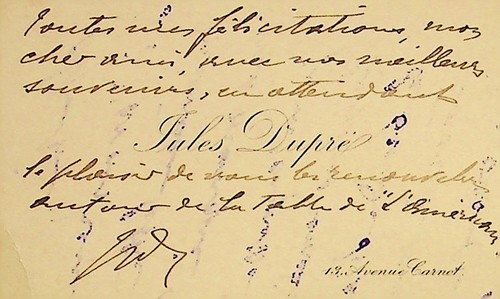 Toutes mes félicitations, mon
cher ami, avec nos meilleurs
souvenirs, en attendant
Jules Dupré
le plaisir de vous les renouveler
autour de la Table de "L'Américain
JD
13, Avenue Carnot